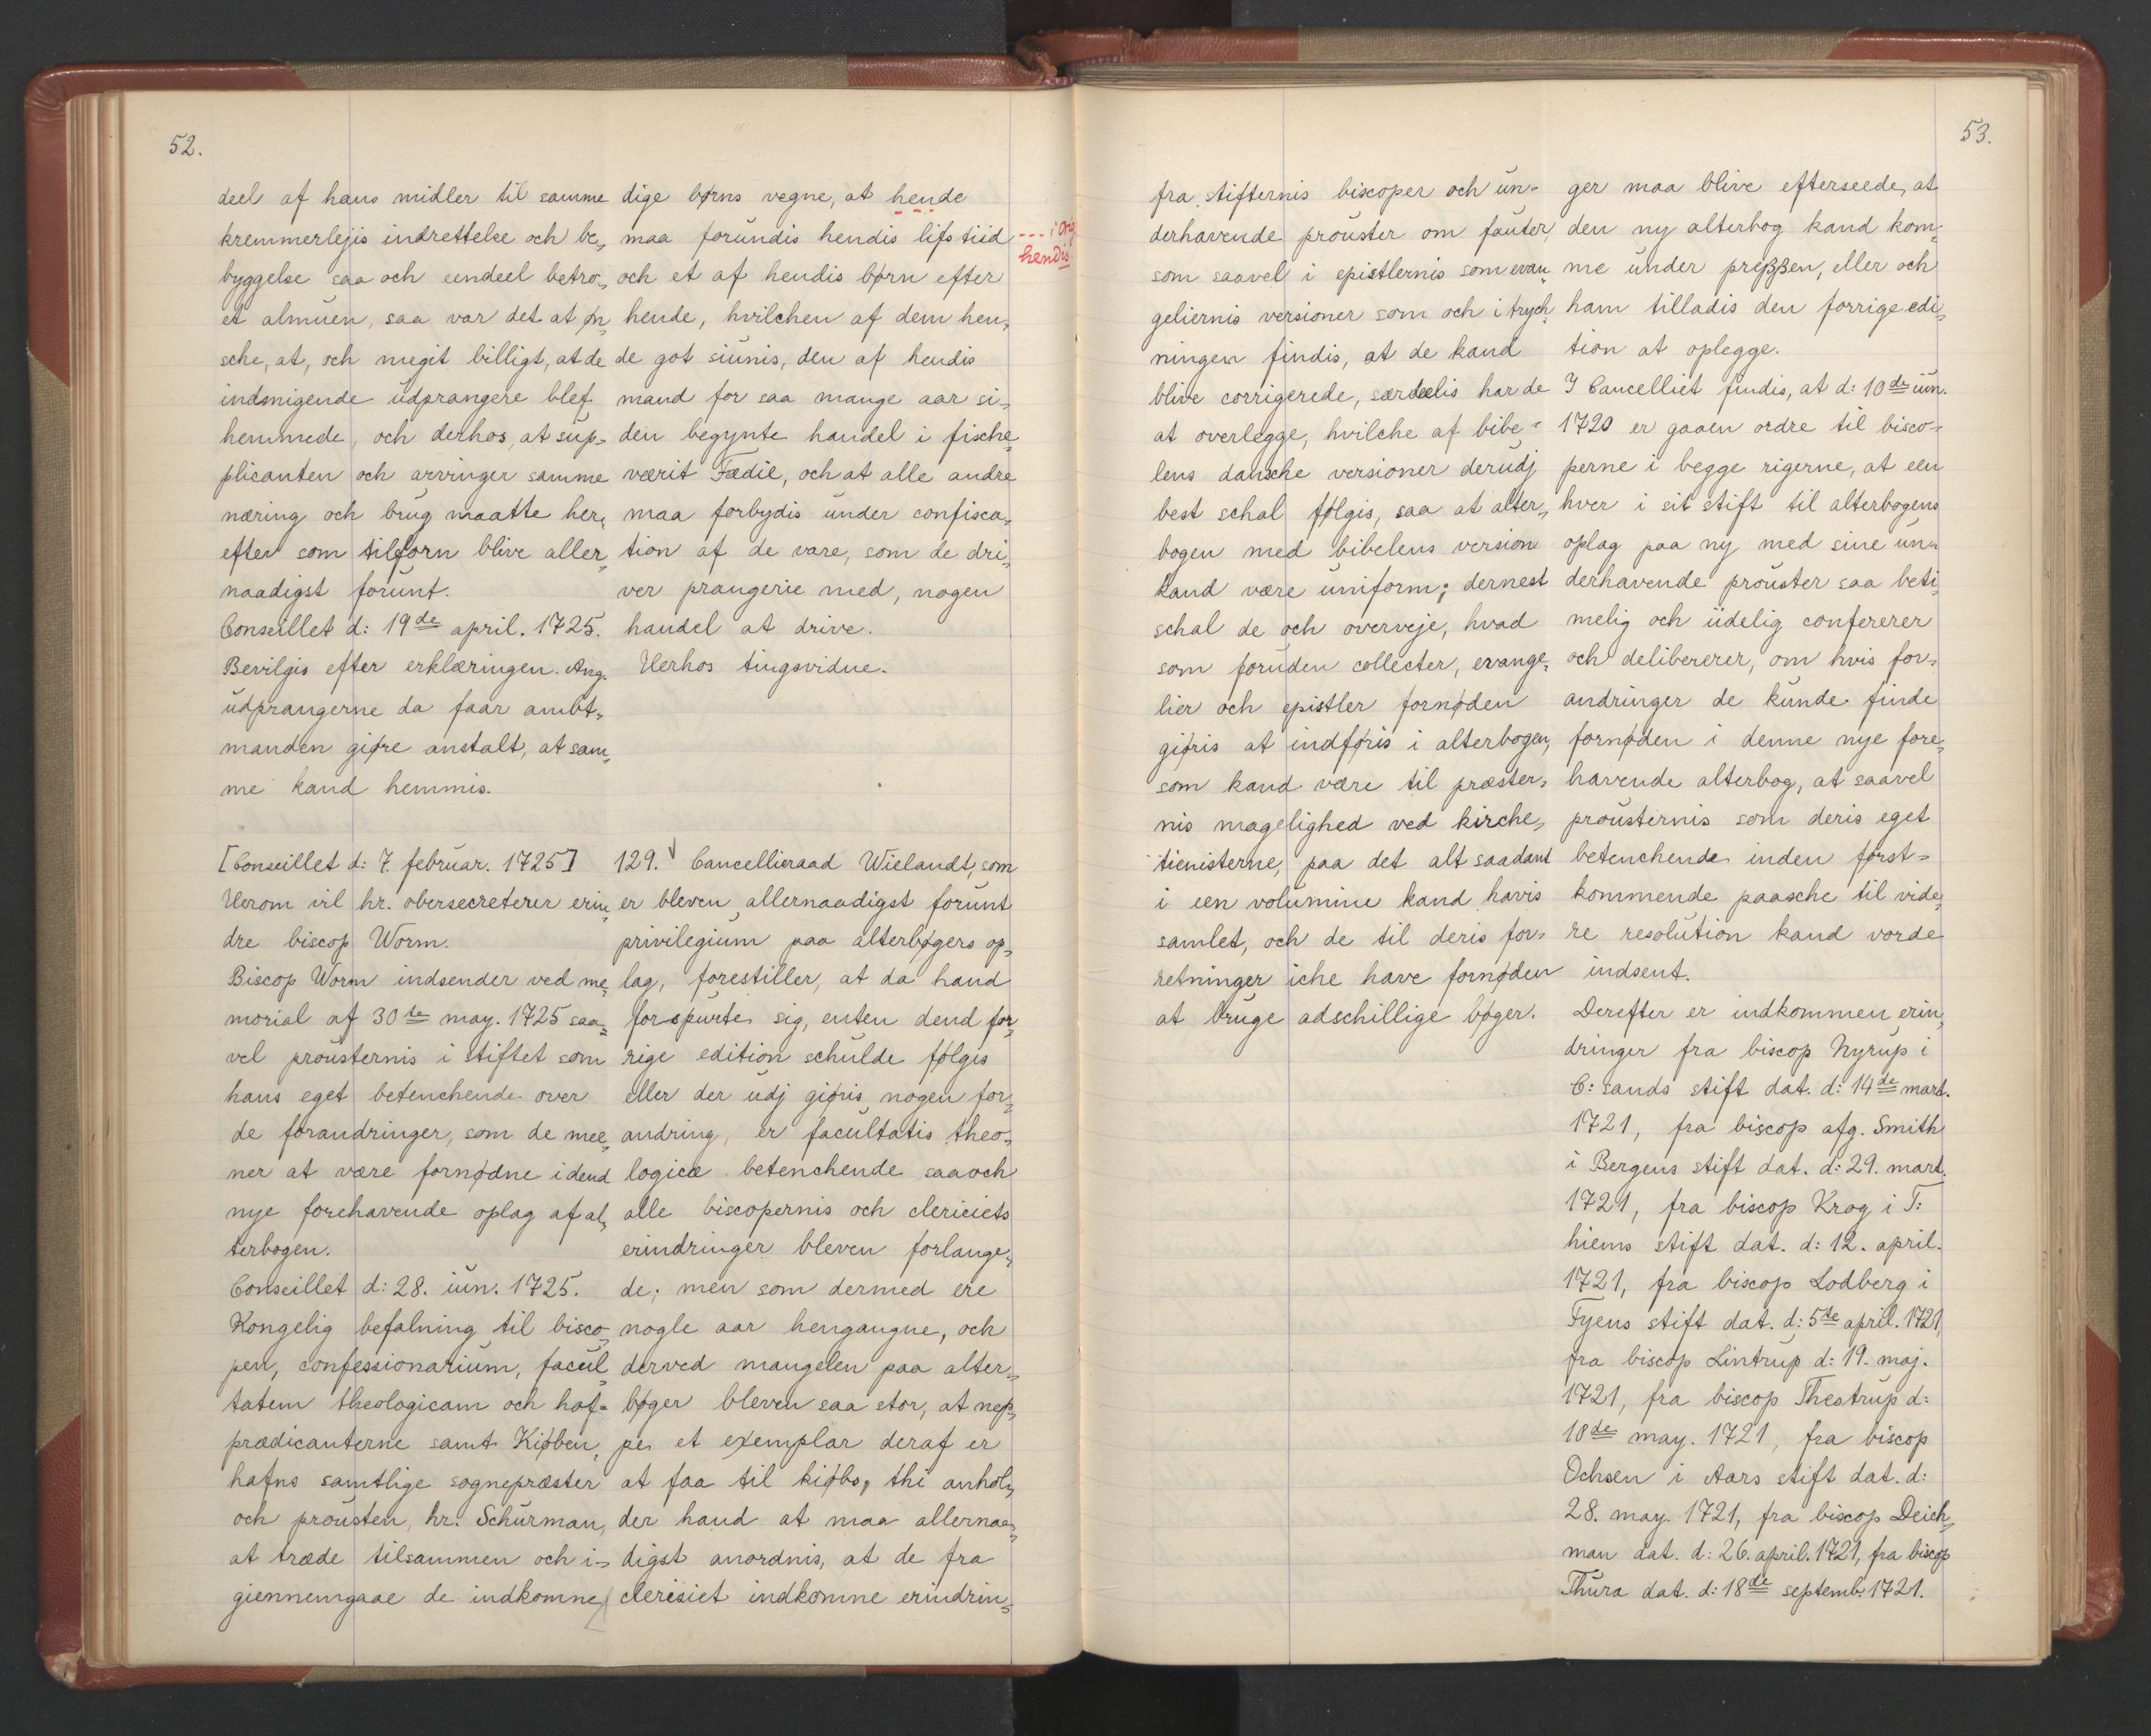 52.
deel af hans midler til samme
kremmerlejis indrettelse och be„
byggelse saa och eendeel betro„
et almuen, saa var det at øn„
sche, at, och megit billigt, at de
indsnigende udprangere blef
hemmede, och derhos, at sup„
plicanten och arvinger samme
næring och brug maatte her„
efter som tilforn blive aller„
naadigst forunt.
Conseillet d: 19de april. 1725.
Bevilgis efter erklæringen. Ang.
udprangerne da faar ambt„
manden giøre anstalt, at sam„
me kand hemmis.
[Conseillet d: 7. februar. 1725]
Herom vil hr. obersecreterer erin„
dre biscop Worm.
Biscop Worm indsender ved me„
morial af 30te may. 1725 saa„
vel proüsternis i stiftet som
hans eget betenchende over
de forandringer, som de mee„
ner at være fornødne i dend
nye forehavende oplag af al„
terbogen.
Conseillet d: 28. iun. 1725.
Kongelig befalning til bisco„
pen, confessionarium, facul„
tatem theologicam och hof„
prædicanterne samt Kiøben„
hafns samtlige sognepræster
och prousten, hr. Schurman,
at træde tilsammen och i„
giennemgaae de indkomne
dige børns vegne, at hende
maa forundis hendis lifs tiid
och et af hendis børn efter
hende, hvilchen af dem hen„
de got siunis, den af hendis
mand for saa mange aar si„
den begynte handel i fische„
værit Fædie, och at alle andre
maa forbydis under confisca„
tion af de vare, som de dri„
ver prangerie med, nogen
handel at drive.
Herhos tingsvidne.
--- i Orig
hendis
129. Cancelliraad Wielandt, som
er bleven allernaadigst forunt
privilegium paa alterbøgers op„
lag, forestiller, at da hand
forspurte sig, enten dend for„
rige edition schulde følgis
eller der udj giøris nogen for„
andring, er facultatis theo„
logicæ betenchende saa och
alle biscopernis och clericiets
erindringer bleven forlange„
de; men som dermed ere
nogle aar hengangne, och
derved mangelen paa alter„
bøger bleven saa stor, at nep„
pe et exemplar deraf er
at faa til kiøbs, thi anhol„
der hand at maa allernaa„
digst anordnis, at de fra
clerisiet indkomne erindrin„
53.
fra stifternis biscoper och un„
derhavende prouster om fauter,
som saavel i epistlernis som evan„
geliernis versioner som och i trych„
ningen findis, at de kand
blive corrigerede, særdeelis har de
at overlegge, hvilche af bibe„
lens dansche versioner derudj
best schal følgis, saa at alter„
bogen med bibelens version
kand være uniform; dernest
schal de och overveje, hvad
som foruden collecter, evange„
lier och epistler fornøden
giøris at indføris i alterbogen,
som kand være til præster„
nis magelighed ved kirche„
tienisterne, paa det alt saadant
i een volumine kand havis
samlet, och de til deris for„
retninger iche have fornøden
at bruge adschillige bøger.
ger maa blive efterseede, at
den ny alterbog kand kom„
me under preßßen, eller och
ham tilladis den forrige edi„
tion at oplegge.
I Cancelliet findis, at d: 10de iun.
1720 er gaaen ordre til bisco„
perne i begge rigerne, at een
hver i sit stift til alterbogens
oplag paa ny med sine un„
derhavende prouster saa beti„
melig och üdelig confererer
och delibererer, om hvis for„
andringer de kunde finde
fornøden i denne nye fore„
havende alterbog, at saavel
prousternis som deris eget
betenchende inden først„
kommende paasche til vide„
re resolution kand vorde
indsent.
Derefter er indkommen erin„
dringer fra biscop Nyrup i
C: sands stift dat. d: 14de mart.
1721, fra biscop afg. Smith
i Bergens stift dat. d: 29. mart.
1721, fra biscop Krog i T:
hiems stift dat. d: 12. april.
1721, fra biscop Lodberg i
Fyens stift dat. d: 5te april. 1721,
fra biscop Lintrup d: 19. maj.
1721, fra biscop Thestrup d:
10de may. 1721, fra biscop
Ochsen i Aars stift dat. d:
28. may. 1721, fra biscop Deich„
man dat. d: 26. april. 1721, fra biscop
Thura dat. d: 18de septemb. 1721.